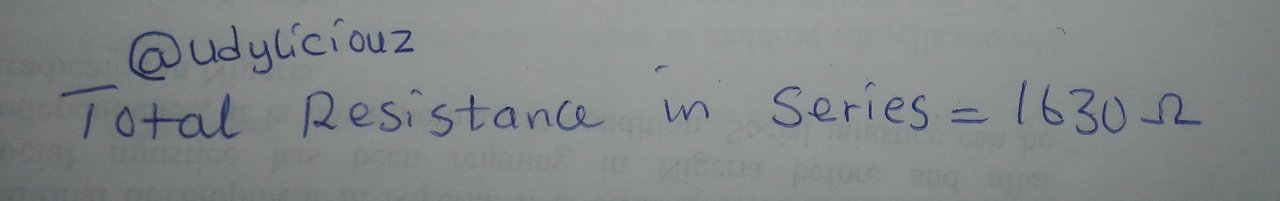 @udyliciouz
Total Resistance in Series = 1630 Ω